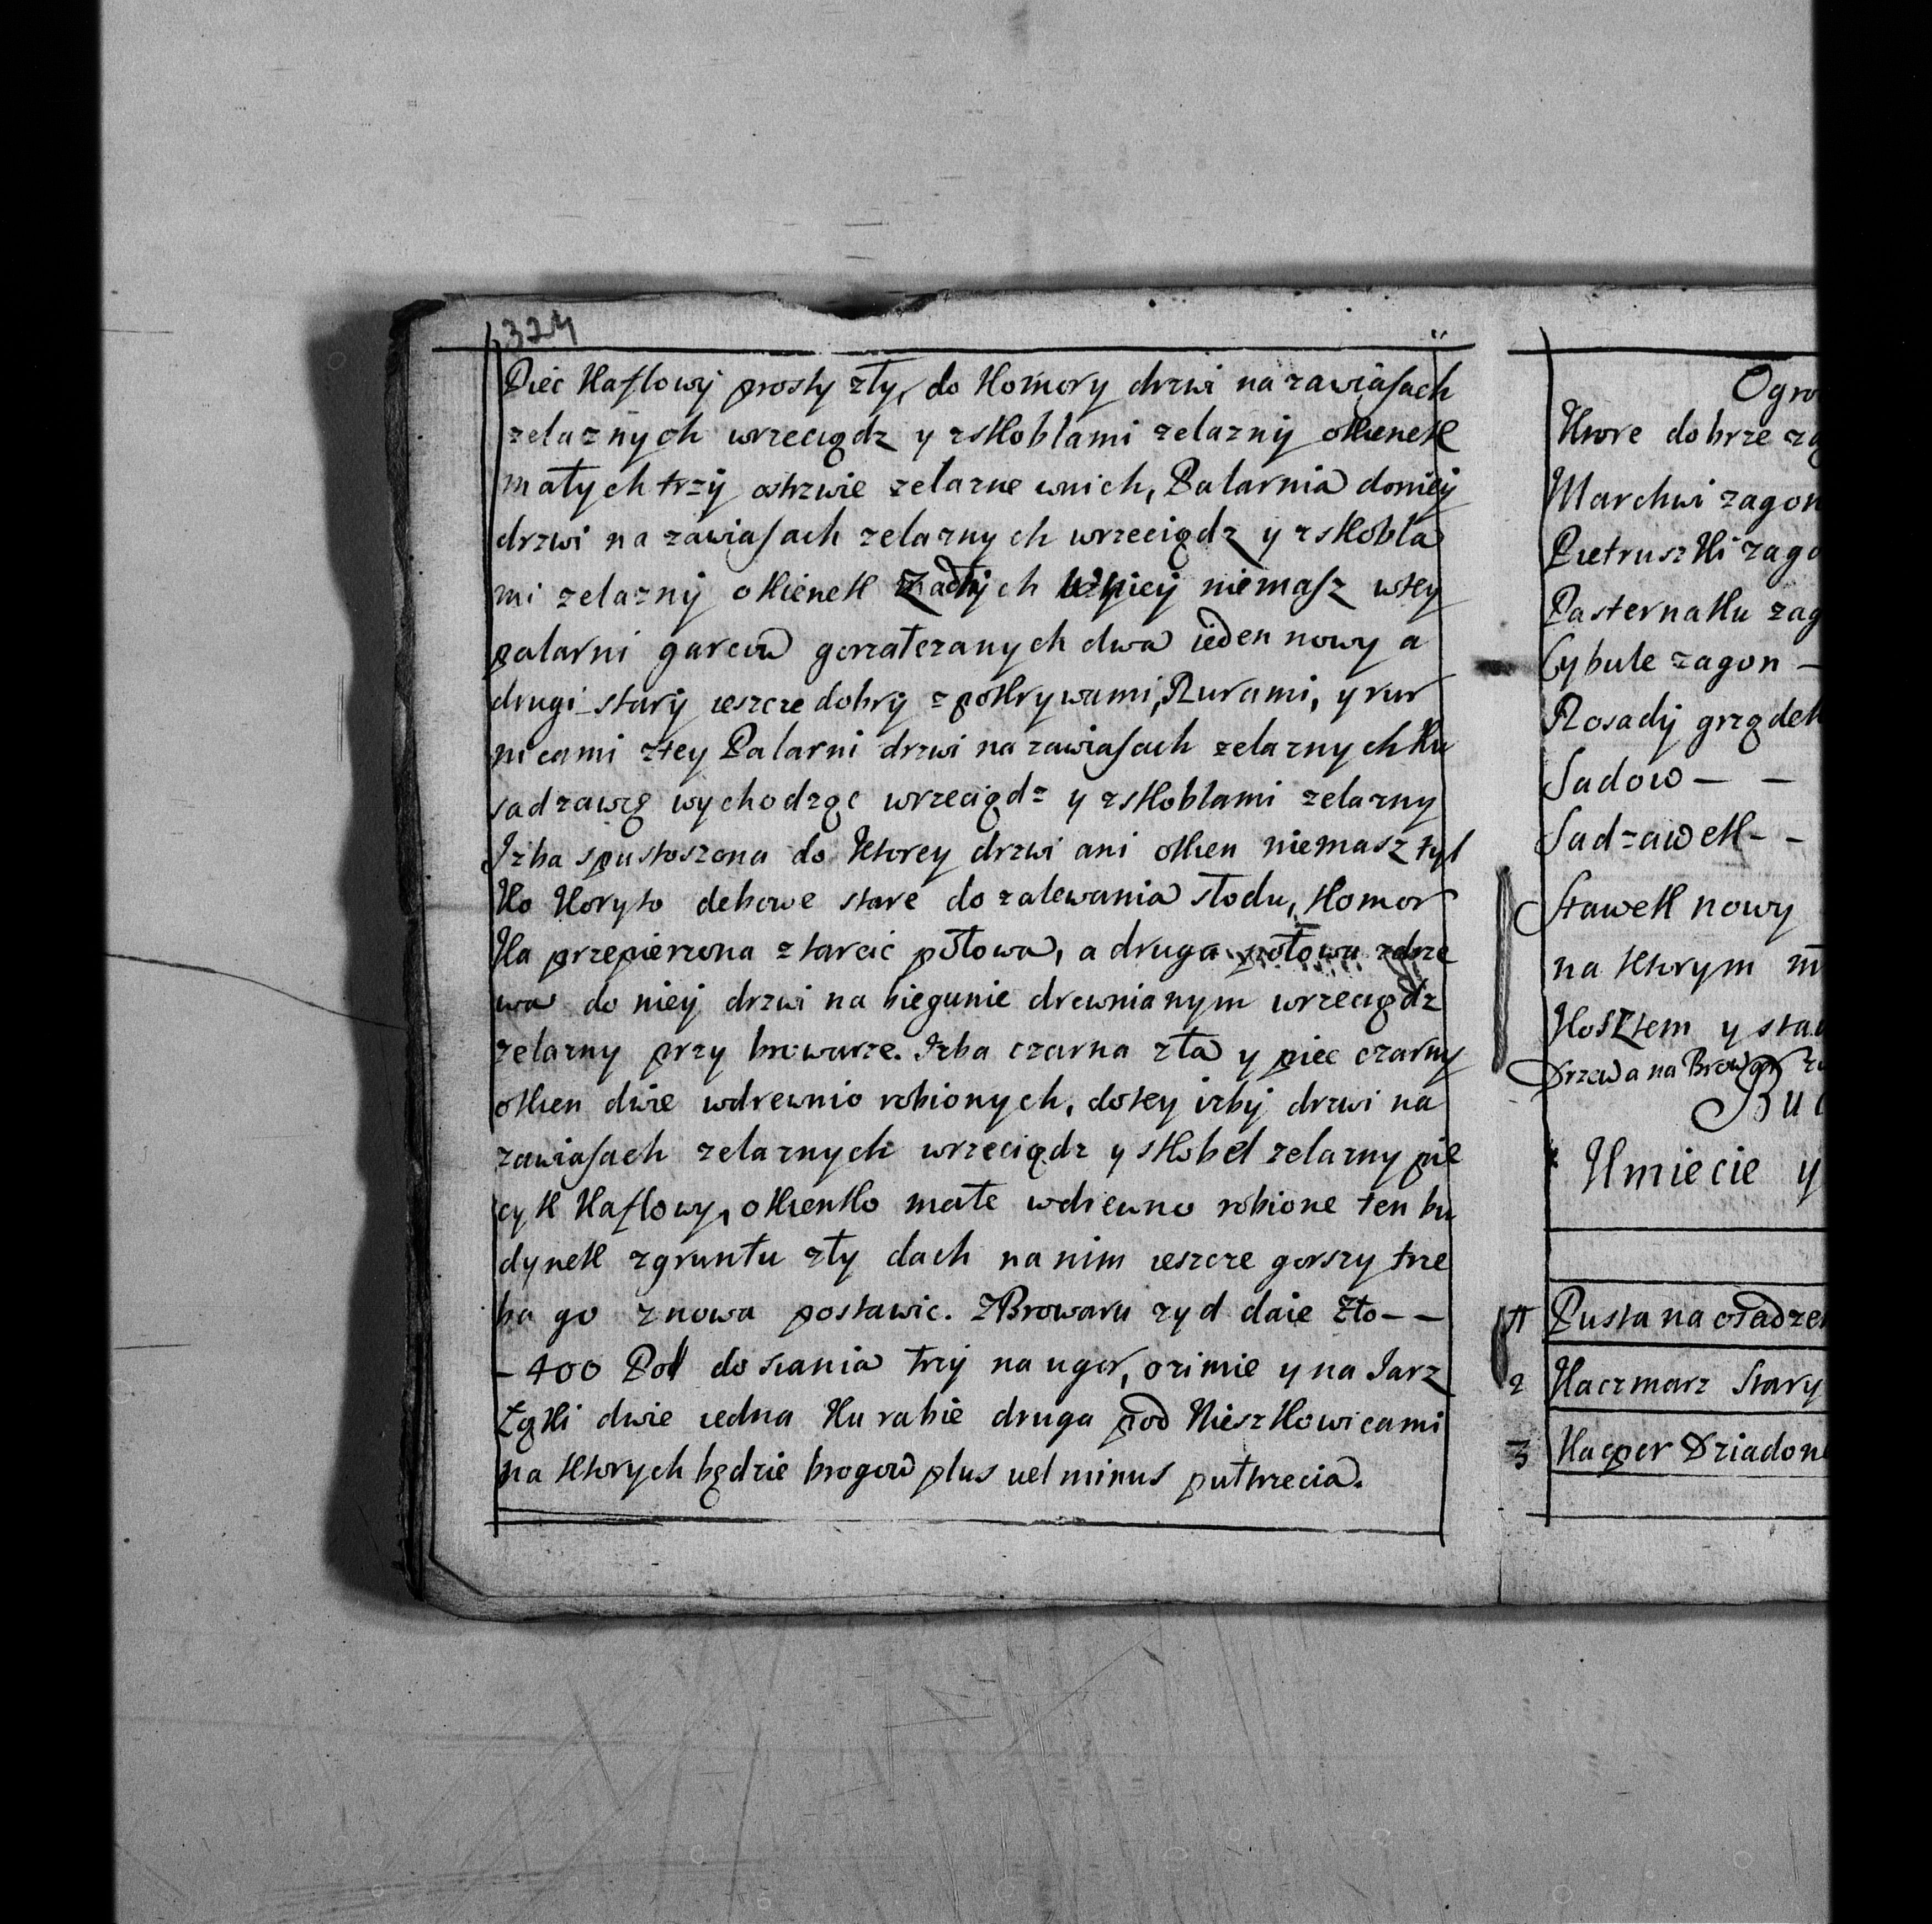 324
Piec kaflowy prosty zły, do komory drzwi na zawiasach
zelaznych wrzeciądz y zskoblami zelazny okienek
małych trzy ostrzwie zelazne wnich, Palarnia doniey
drzwi na zawiasach zelaznych wrzeciądz y zskobla
mi zelazny okienek żadnych niemasz wtey
palarni garcow gorzałczanych dwa ieden nowy a
drugi stary ieszcze dobry z pokrywami, Rurami, y rur
nicami ztey Palarni drzwi na zawiasach zelaznych ku
sadzawcę wychodząc wrzeciądz y zskoblami zelazny
Izba spustoszona do ktorey drzwi ani okien niemasz tyl
ko koryto debowe stare do zalewania słodu, komor
ka przepierzona ztarcic połowa, a druga połowa zdrze
wa do niey drzwi na biegunie drewnianym wrzeciądz
zelazny przy browarze. Izba czarna zła y piec czarny
okien dwie wdrewnio robionych, dotey izby drzwi na
zawiasach zelaznych wrzeciądz y skobel zelazny pie
cyk kaflowy, okienko małe wdrewno robione ten bu
dynek zgruntu zły dach na nim ieszcze gorszy trze
ba go znowa postawic. ZBrowaru zyd daie Zło--
- 400 Pol do siania trzy na ugor, ozimie y na Jarz
Łąki dwie iedna ku rabie druga pod Nieszkowicami
na ktorych będzie brogow plus uel minus pułtrzecia.
Ogro
Ktore dobrze zag
Marchwi zagon
Pietruszki zago
Pasternaku zag
Cybule zagon -
Rosady grządek
Sadow - -
Sadzawek - -
Stawek nowy
na ktorym m
kosztem y staw
Drzewa na Browar
Bud
Kmiecie y
1 Pusta na osadzen
2 Kaczmarz Stary
3 Kacper Dziadon